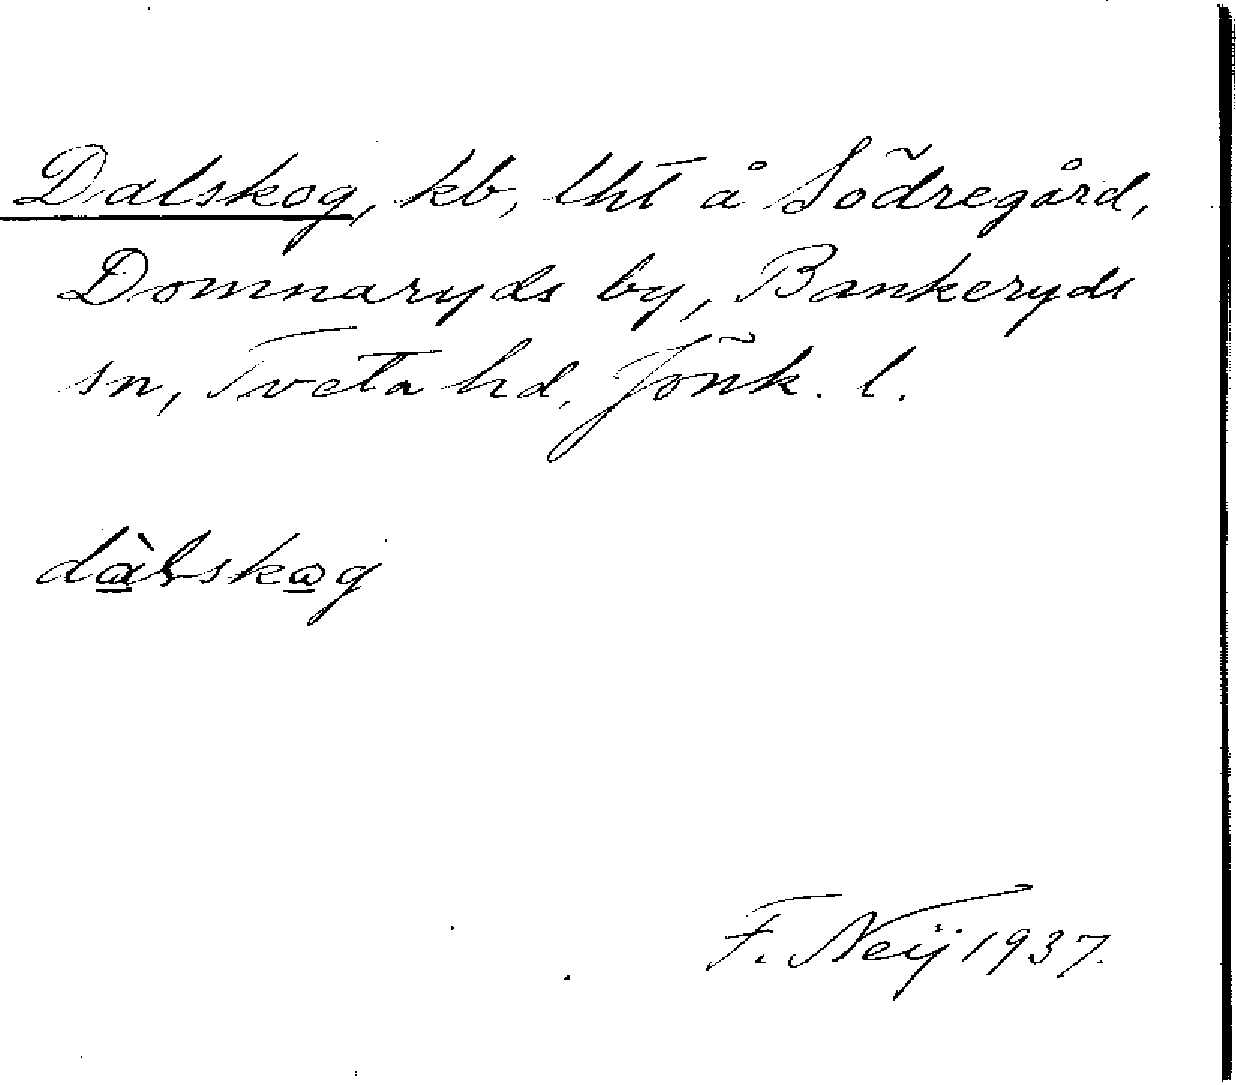 Dalskog, kb, lht å Södregård,
Domnaryds by, Bankeryds
sn, Tveta hd, Jönk. l.
dàlskog
F. Neij 1937.